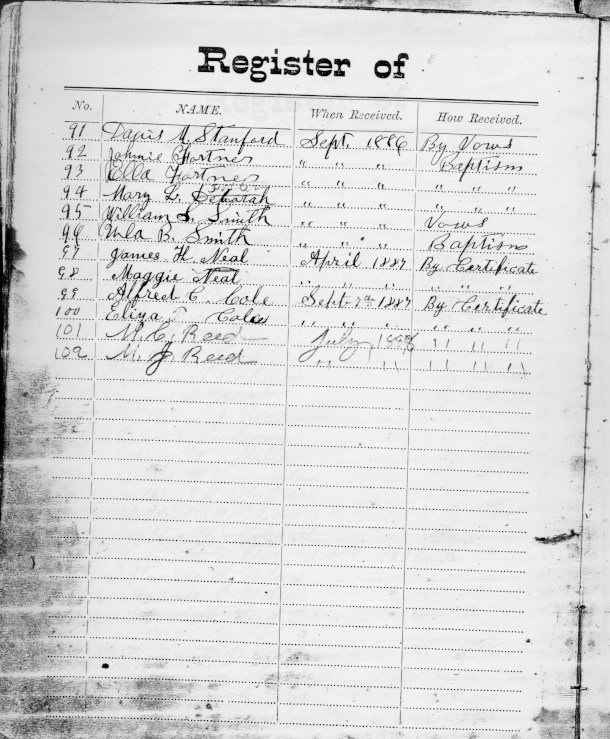 Register of
No. NAME. When Received. How Received.
91 Davis M. Stanford Sept. 1886 By Vows
92 Johnnie Fortner " " " Baptism
93 Ella Fortner " " " " " "
94 Mary L. Deborah " " " " " "
95 William S. Smith " " " Vows
96 B. Smith " " " Baptism
97 James H. Neal April 1887 By Certificate
98 Maggie Neal " " " " " "
99 Alfred C. Cole Sept. 7th 1887 By Certificate
100 Eliza Cole " " " " " "
101 M. C. Reed July " " "
102 M. J. Reed " " " " "